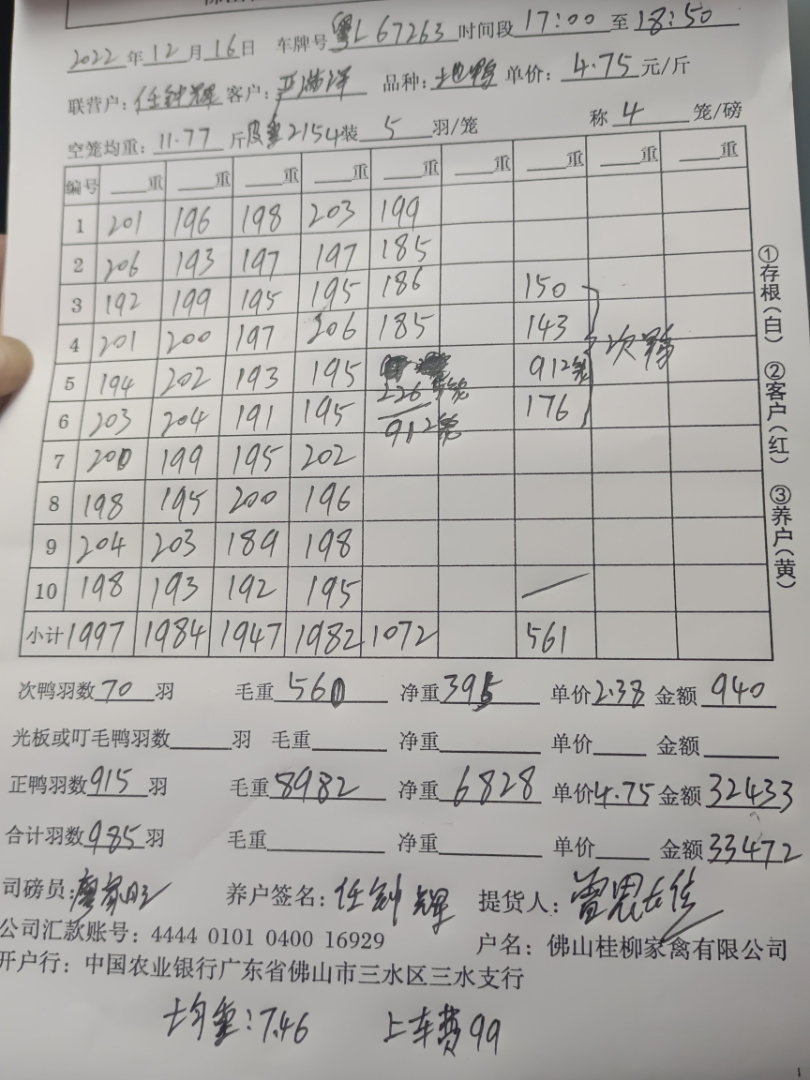 2022年12月16日 车牌号 粤L67263 时间段 17:00 至 18:50
联营户: 任钟辉 客户: 品种: 土地鸭 单价: 4.75 元/斤
空笼均重: 11.77 斤 皮重2154 装 5 羽/笼 称 4 笼/磅
编号 重 重 重 重 重 重 重 重 重
1 201 196 198 203 199
2 206 193 197 197 185
3 192 199 195 195 186 150
4 201 200 197 206 185 143 次鸭
5 194 202 193 195 226 912笼
6 203 204 191 195 912笼 176
7 200 199 195 202
8 198 195 200 196
9 204 203 189 198
10 198 193 192 195
小计 1997 1984 1947 1982 1072 561
次鸭羽数 70 羽 毛重 560 净重 395 单价 2.38 金额 940
光板或叮毛鸭羽数 羽 毛重 净重 单价 金额
正鸭羽数 915 羽 毛重 8982 净重 6828 单价 4.75 金额 32433
合计羽数 985 羽 毛重 净重 单价 金额 33472
司磅员: 廖家旺 养户签名: 任钟辉 提货人:
公司汇款账号: 4444 0101 0400 16929 户名: 佛山桂柳家禽有限公司
开户行: 中国农业银行广东省佛山市三水区三水支行
均重: 7.46 上车费 99
①存根(白) ②客户(红) ③养户(黄)